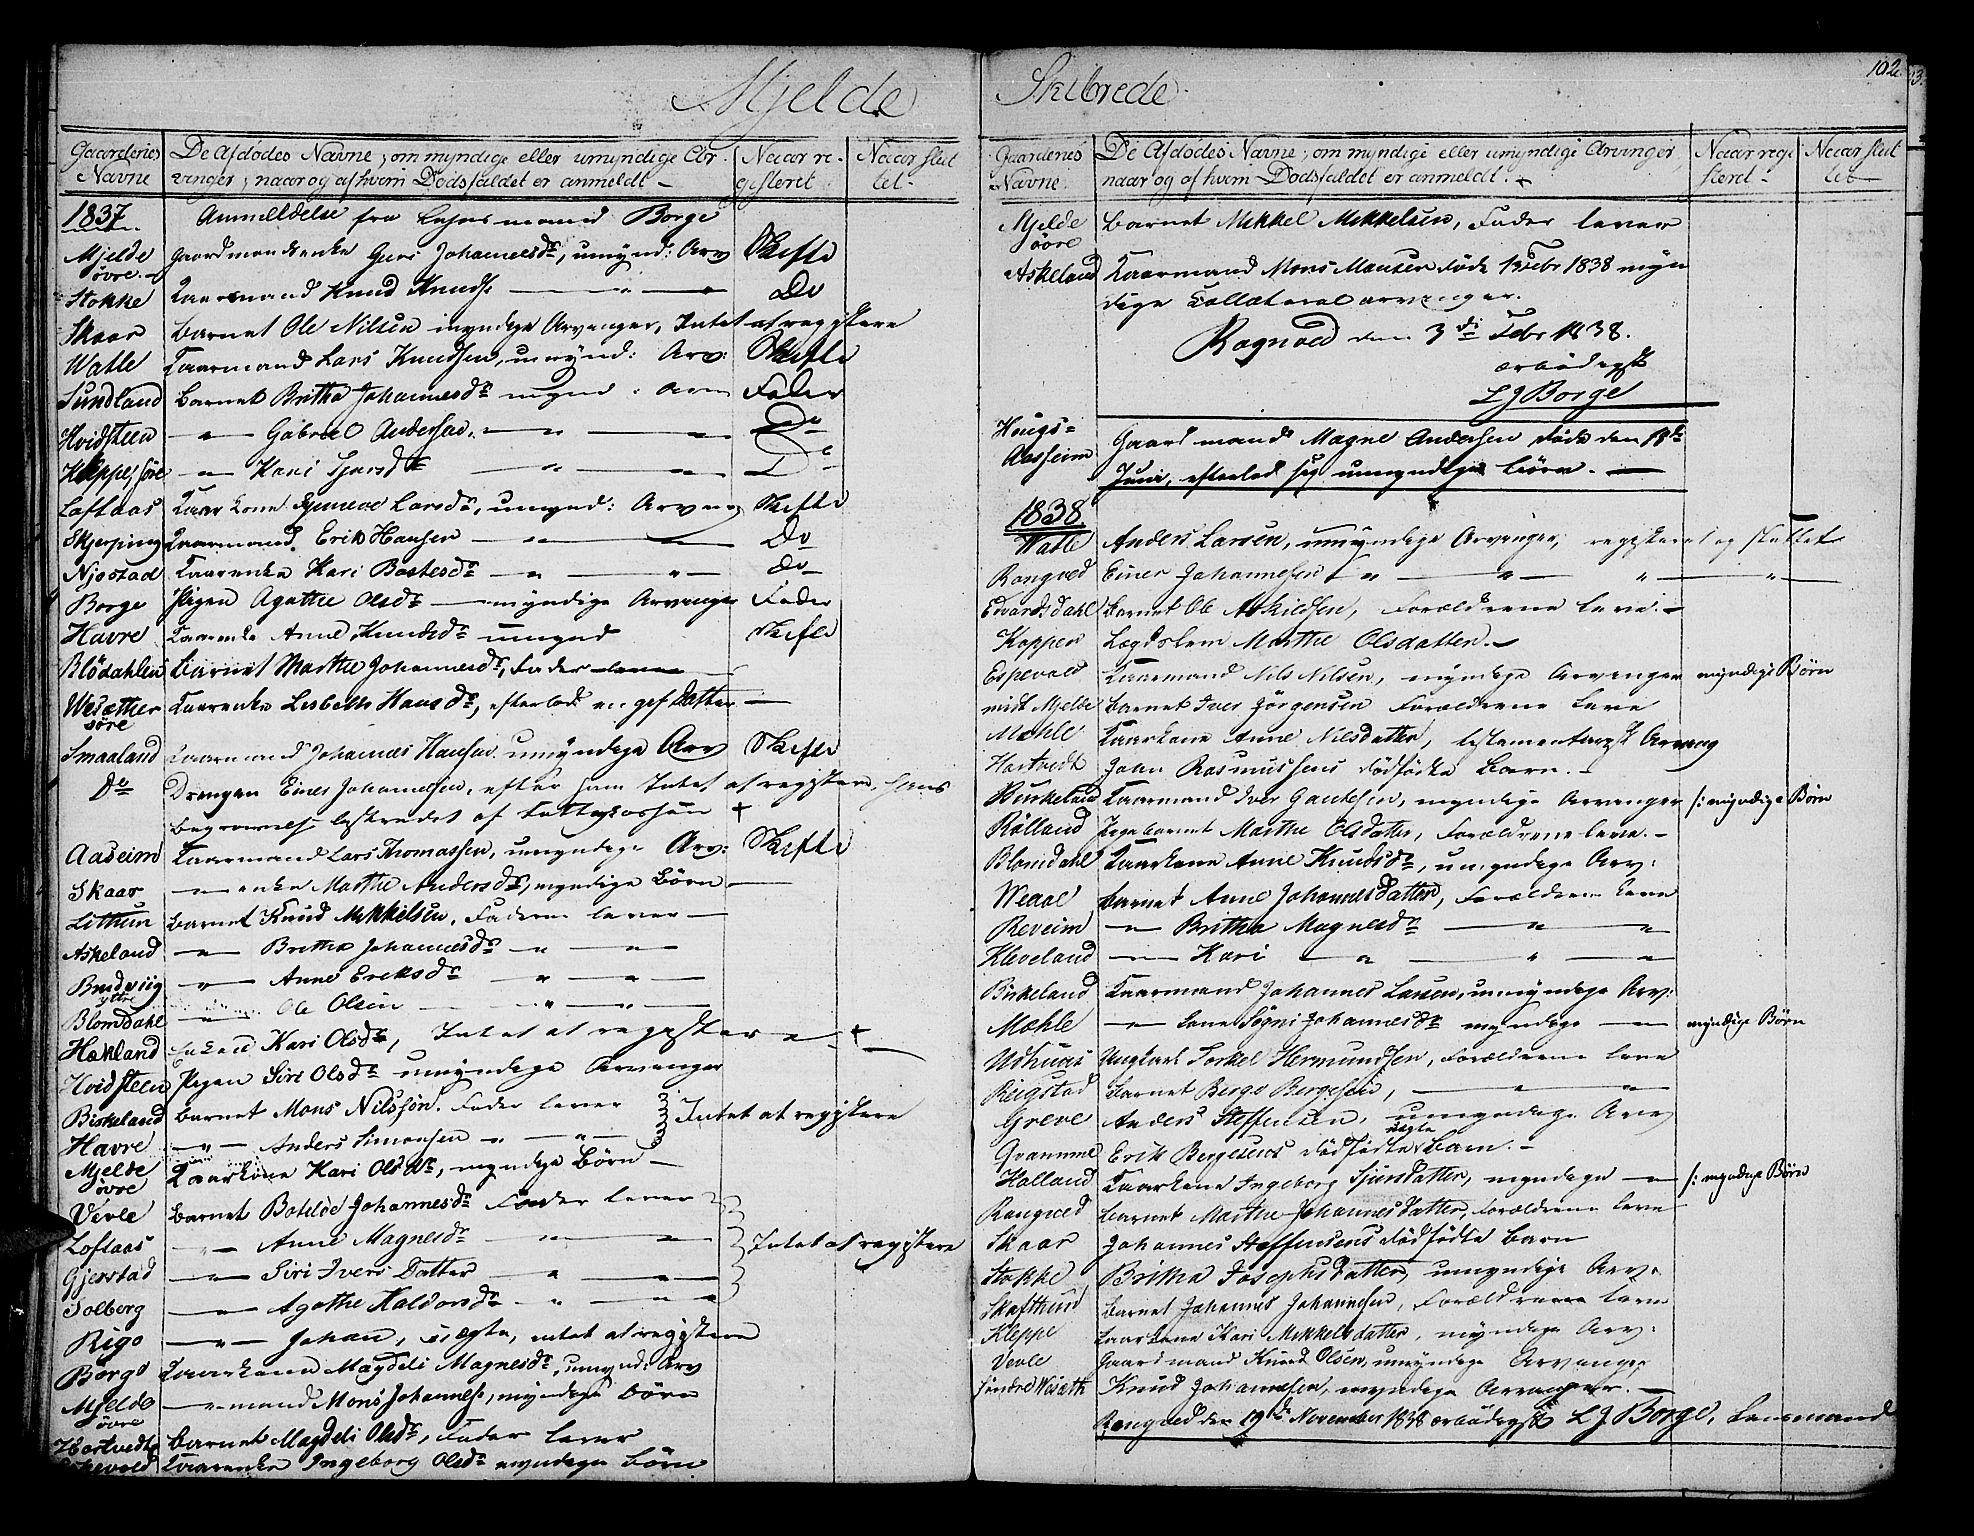 Mjelde
Gaardenes Navne
De Afdödes Navne, om myndige eller umyndige Ar-
vinger, naar og af hvem Dödsfaldet er anmeldt
Naar re-
gisteret
Naar slut
tet
1837 Anmeldelse fra Lehnsmand Borge
Mjelde øvre Gaardmandsenke Guri Johannesdr, umynd: Arv Skifte
Stokke Kaarmand Knud Knuds — " — Do
Skaar Barnet Ole Nilsen myndige Arvinger, Intet at registere
Watle Kaarmand Lars Knudsen, umynd: Arv: Skifte
Sundland Barnet Britha Johannesdr Fader
Hvidsteen — " — Gabriel Andersen — " — Do
Kleppe, søre — " — Kari Sjursdr — " — Do
Loftaas Kaarkone Synneve Larsdr, umynd: Arving Skifte
Skjerping Kaarmand Erik Hansen — " — Do
Njostad Kaarenke Kari Bottesdr — " — do
Borge Pigen Agathe Olsdr — myndige Arvinger Fader
Havre Kaarenke Anne Knudsdr umynd Skifte
Blødahlen Barnet Marthe Johannesdr, Fader lever
Wesæther søre Kaarenke Lisbeth Hansdr, efterlod en gift Datter —
Smaaland Kaarmand Johannes Hansen umyndige Arv Skifte
Do Drengen Einer Johannesen, efter ham Intet at registere, hans
begravelse bestredet af Fattigkassen +
Aaseim Kaarmand Lars Thomassen, umyndige Arv: Skifte
Skaar — " — enke Marthe Andersdr, myndige Børn —
Lithun Barnet Knud Mikkelsen, Faderen lever —
Askeland — " — Britha Johannesdr — " — " —
Brudviig yttre — " — Anne Eriksdr — " — " —
Blomdahl — " — Ole Olsen — " — " —
Hækland Enken Kari Olsdr, Intet at registere — +
Hvidsteen Pigen Siri Olsdr umyndige Arvinger
Birkeland Barnet Mons Nilssøn, Fader lever Intet at registere
Havre — " — Anders Simonsen — " — " —
Mjelde øvre Kaarkone Kari Olsdr, myndige Børn —
Vevle Barnet Botilde Johannesdr Fader lever
Loftaas — " — Anne Magnesdr — " — " — Intet at registere
Gjerstad — " — Siri Ivers Datter — " — " —
Solberg — " — Agathe Haldorsdr — " — " —
Rigo — " — Johan, uægte, intet at registere
Borge Kaarkone Magdeli Magnesdr, umynd: Arv
Mjelde øvre — " — mand Mons Johannes, myndige Børn
Hartvedt Barnet Magdeli Olsdr, Fader lever
Kaarenke Ingeborg Olsdr myndige Børn
Skibrede
102
Gaardenes Navne
De Afdödes Navne, om myndige eller umyndige Arvinger,
naar og af hvem Dödsfaldet er anmeldt
Naar regi
steret
Naar slut
tet
Mjelde øvre Barnet Mikkel Mikkelsen, Fader lever
Askeland Kaarmand Mons Monsen døde 1 Febr 1838 myn
dige Collateralarvinger.
Rognved den 3die Febr 1838.
ærbødigst
L J Borge
Hougs-
Aasheim
Gaardmand Magne Andersen døde den 18de
Juni, efterlod sig umyndige børn. —
1838
Watle Anders Larsen, umyndige Arvinger, registeret og sluttet
Rongved Einer Johannesen — " — " — " — " —
Edvardsdahl Barnet Ole Askildsen, Forældrene leve. —
Koppen Lægdslem Marthe Olsdatter. —
Espevold Kaarmand Nils Nilsen, myndige Arvinger myndige Børn
midt Mjelde Barnet Iver Jörgensen Forældrene leve
Mæhle Kaarkone Anne Nilsdatter, Arving
Hartvedt John Rasmussens dødfødte Barn. —
Burkeland Kaarmand Iver Gautesen, myndige Arvinger /: myndige Børn
Rølland Pigebarnet Marthe Olsdatter, Forældrene leve. —
Blomdahl Kaarkone Anne Knudsdr, umyndige Arv:
Weaae Barnet Anne Johannesdatter, Forældrene leve
Reveim — " — Britha Magnesdr — " — " —
Kleveland — " — Kari — " — " — " —
Birkeland Kaarmand Johannes Larsen, umyndige Arv:
Mæhle — " — kone Signi Johannesdr myndige — " — myndige Børn
Udhuus Ungkarl Torkel Hermundsen, Forældrene leve
Reigstad Barnet Berge Bergesen, — " — " —
Greve Anders Steffensen, umyndige Arv
Qvamme Erik Bergesens dødfødte uægte Barn. —
Holland Kaarkone Ingeborg Sjursdatter, myndige — " — /: myndige Börn
Rongved Barnet Marthe Johannesdatter, Forældrene leve
Skaar Johannes Steffensens dødfødte Barn
Stokke Britha Josephsdatter, umyndige Arv.
Skafthun Barnet Johannes Johannesen, Forældrene leve
Kleppe Kaarkone Kari Mikkelsdatter, myndige Arv:
Vevle Gaardmand Knud Olsen, umyndige Arvinger
søndre Wesæth Knud Johannesen, myndige Arvinger. —
Rongved den 19de November 1838 ærbødigst L J Borge, Lensmand